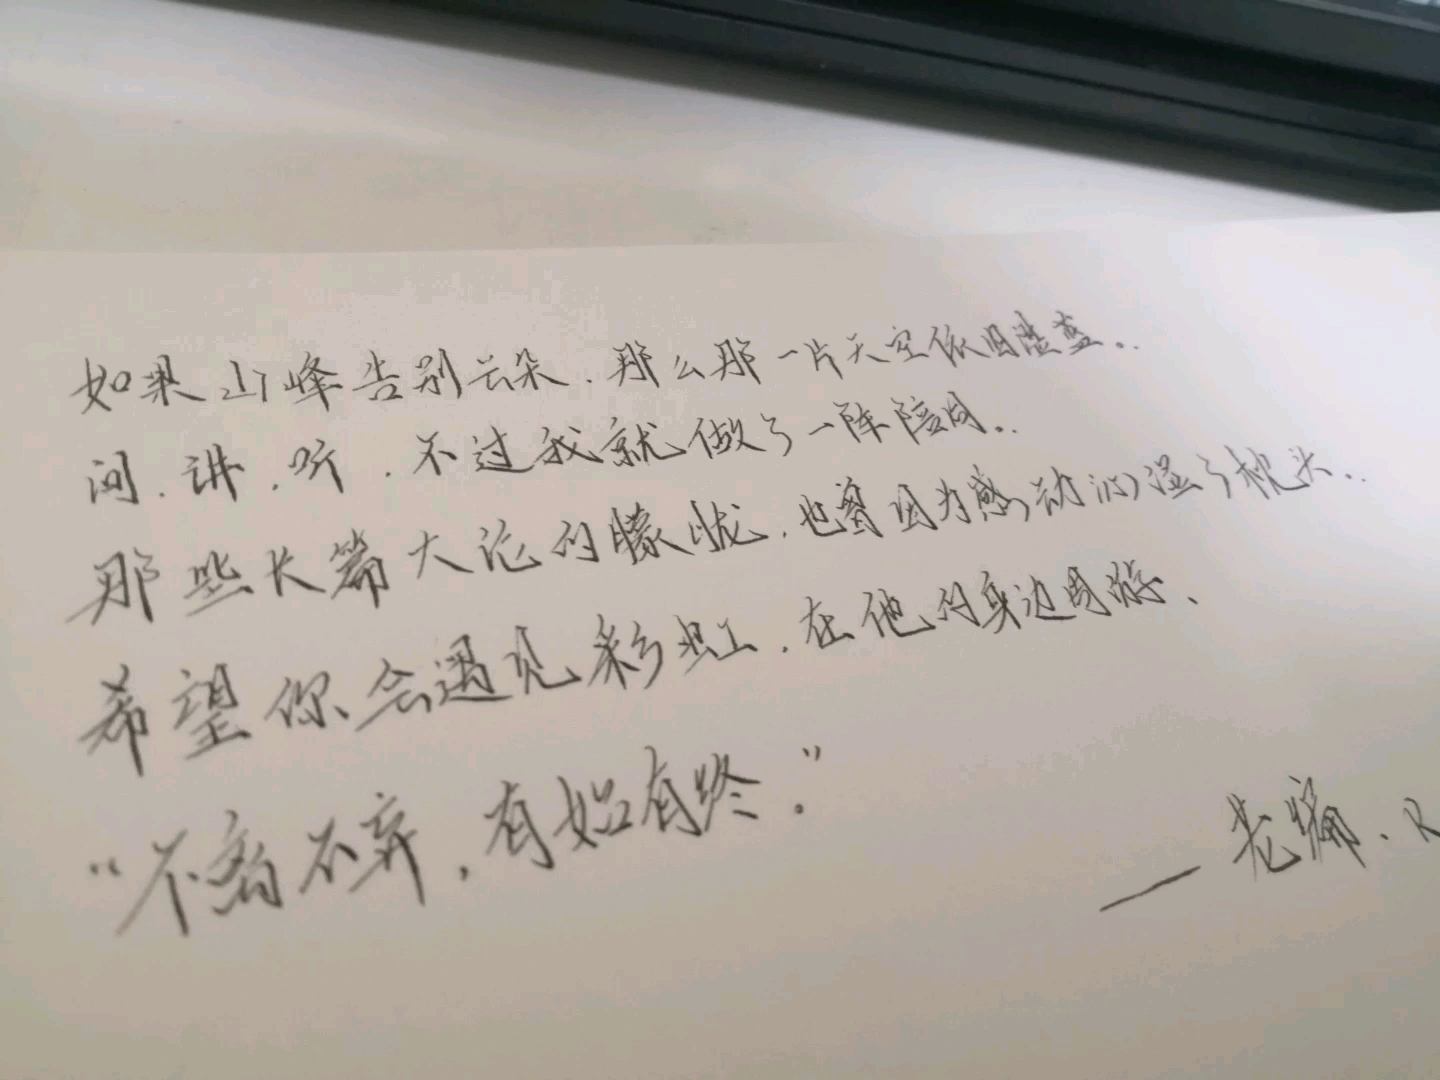 如果山峰告别云朵、那么那一片天空依旧湛蓝。..
问、讲、听、不过我就做了一阵陪同..
那些长篇大论的朦胧、也曾因为感动泪湿了枕头..
希望你会遇见彩虹、在他的身边周游、
“不离不弃，有始有终。”
—老